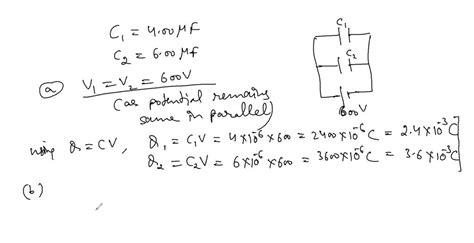 C₁ = 4.00 μf
C₂ = 6.00 μf
C₁
C₂
600V
(a) V₁ = V₂ = 600V
(as potential remains
same in parallel)
using Q = CV, Q₁ = C₁V = 4×10⁻⁶×600 = 2400×10⁻⁶C = 2.4×10⁻³C
Q₂ = C₂V = 6×10⁻⁶×600 = 3600×10⁻⁶C = 3.6×10⁻³C
(b)